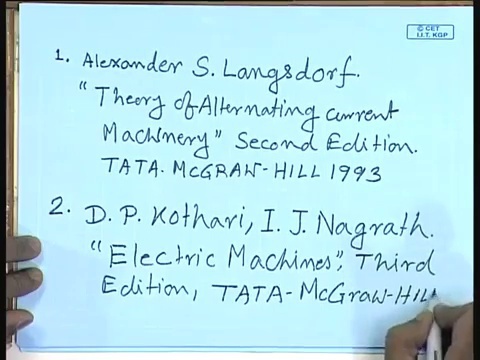 © CET
I.I.T. KGP
1. Alexander S. Langsdorf.
"Theory of Alternating current
Machinery" Second Edition.
TATA. McGRAW-HILL 1993
2. D. P. Kothari, I. J. Nagrath.
"Electric Machines", Third
Edition, TATA-McGraw-Hill